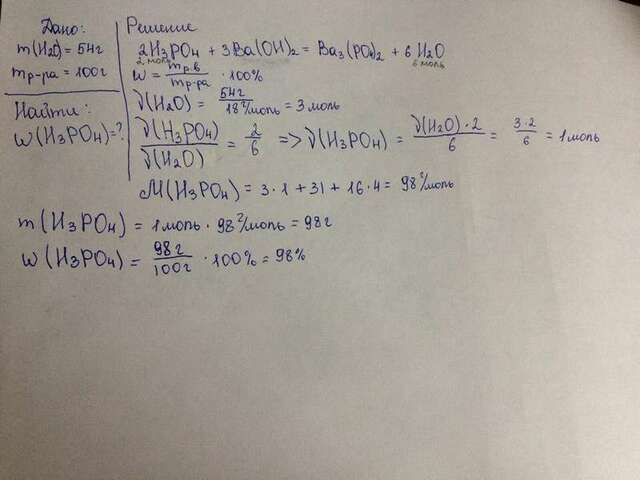 Дано:
m(H2O) = 54г
mр-ра = 100г
Найти:
w(H3PO4)=?
Решение
2H3PO4 + 3Ba(OH)2 = Ba3(PO4)2 + 6H2O
2 моль 6 моль
w = mр.в / mр-ра · 100%
ν(H2O) = 54г / 18г/моль = 3 моль
ν(H3PO4) / ν(H2O) = 2/6 => ν(H3PO4) = ν(H2O)·2 / 6 = 3·2 / 6 = 1 моль
M(H3PO4) = 3·1 + 31 + 16·4 = 98г/моль
m(H3PO4) = 1 моль · 98г/моль = 98г
w(H3PO4) = 98г / 100г · 100% = 98%